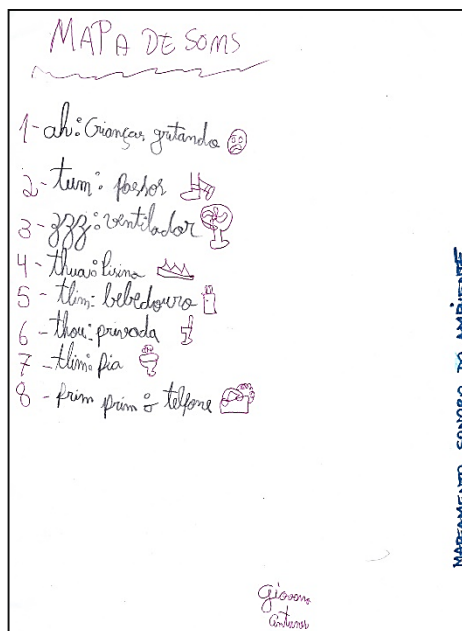 MAPA DE SOMS
1-ah: Crianças gritando
2-tum: passos
3-zzz: ventilador
4-thua: Pisina
5-tlim: bebedouro
6-thou: privada
7-tlim: pia
8-prim prim: telfone
Giovana
Antunes
MAPEAMENTO SONORO DO AMBIENTE